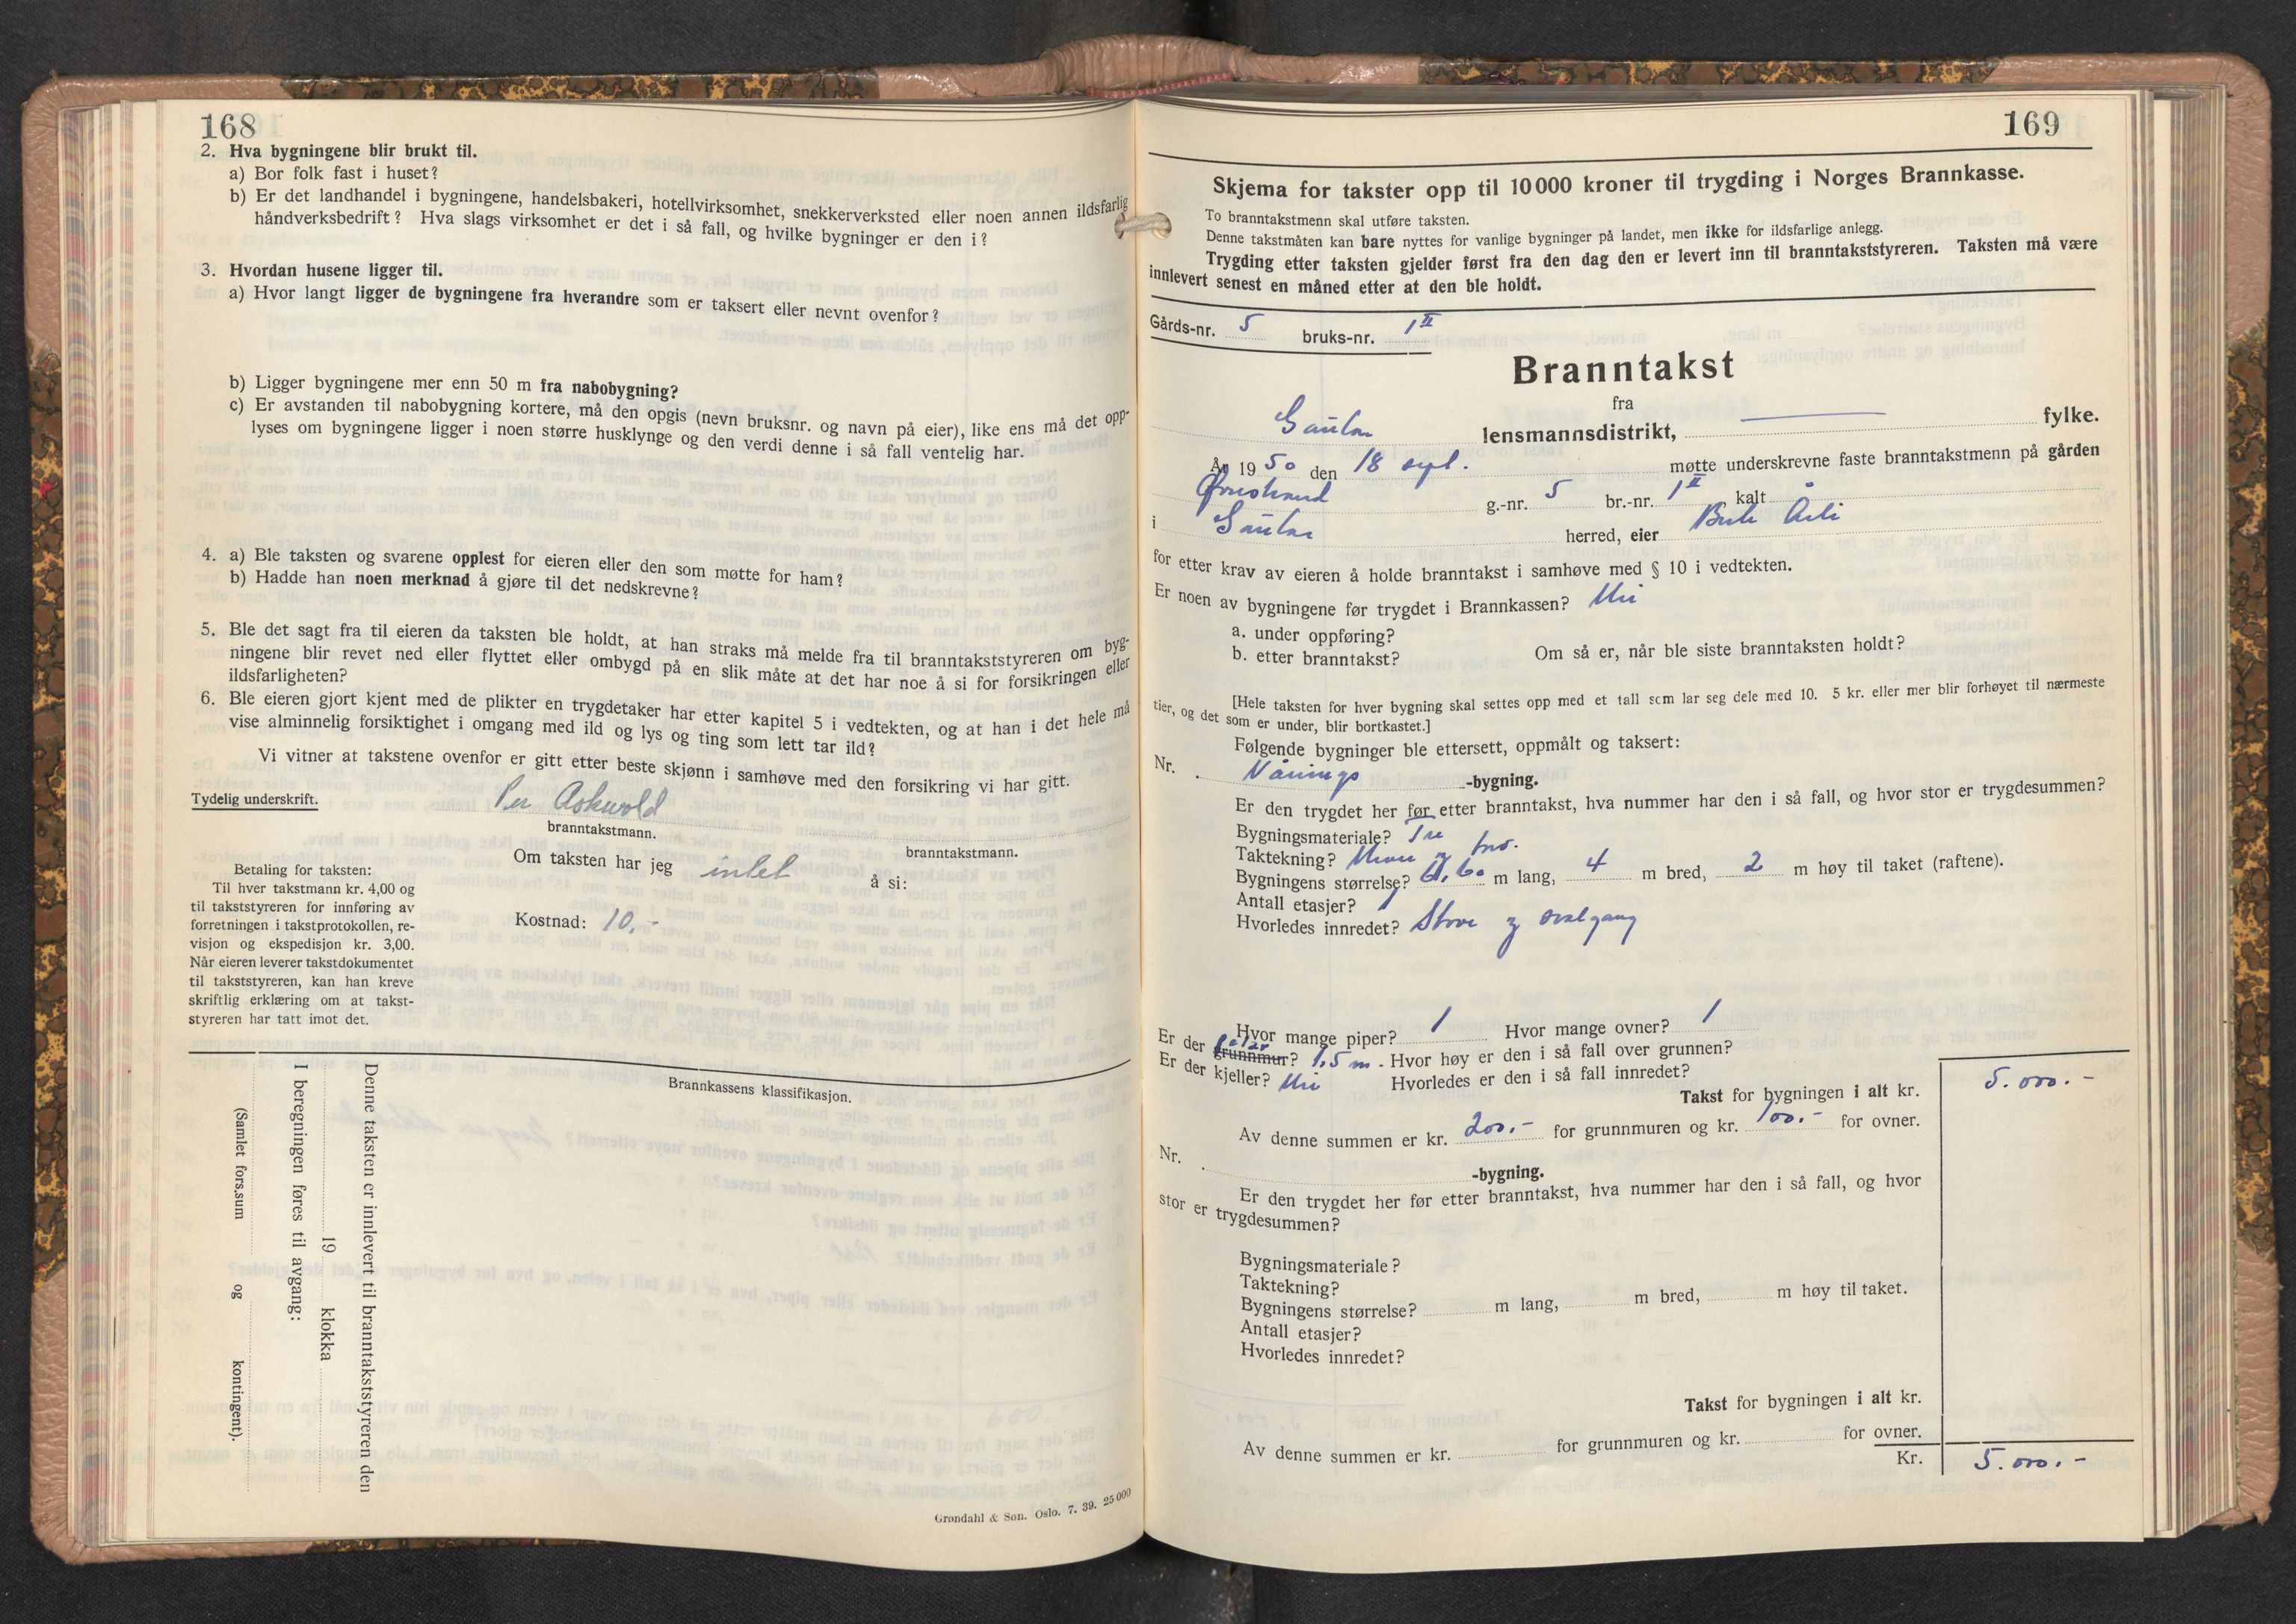 168
2. Hva bygningene blir brukt til.
a) Bor folk fast i huset?
b) Er det landhandel i bygningene, handelsbakeri, hotellvirksomhet, snekkerverksted eller noen annen ildsfarlig
håndverksbedrift? Hva slags virksomhet er det i så fall, og hvilke bygninger er den i?
3. Hvordan husene ligger til.
a) Hvor langt ligger de bygningene fra hverandre som er taksert eller nevnt ovenfor?
b) Ligger bygningene mer enn 50 m fra nabobygning?
c) Er avstanden til nabobygning kortere, må den opgis (nevn bruksnr. og navn på eier), like ens må det opp-
lyses om bygningene ligger i noen større husklynge og den verdi denne i så fall ventelig har.
4. a) Ble taksten og svarene opplest for eieren eller den som møtte for ham?
b) Hadde han noen merknad å gjøre til det nedskrevne?
5. Ble det sagt fra til eieren da taksten ble holdt, at han straks må melde fra til branntakststyreren om byg-
ningene blir revet ned eller flyttet eller ombygd på en slik måte at det har noe å si for forsikringen eller
ildsfarligheten?
6. Ble eieren gjort kjent med de plikter en trygdetaker har etter kapitel 5 i vedtekten, og at han i det hele må
vise alminnelig forsiktighet i omgang med ild og lys og ting som lett tar ild?
Vi vitner at takstene ovenfor er gitt etter beste skjønn i samhøve med den forsikring vi har gitt.
Tydelig underskrift. Per Askvold
branntakstmann. branntakstmann.
Om taksten har jeg intet å si:
Kostnad: 10.-
Betaling for taksten:
Til hver takstmann kr. 4,00 og
til takststyreren for innføring av
forretningen i takstprotokollen, re-
visjon og ekspedisjon kr. 3,00.
Når eieren leverer takstdokumentet
til takststyreren, kan han kreve
skriftlig erklæring om at takst-
styreren har tatt imot det.
Brannkassens klassifikasjon.
Denne taksten er innlevert til branntakststyreren den
19 klokka
I beregningen føres til avgang:
(Samlet fors.sum og kontingent).
Grøndahl & Søn. Oslo. 7. 39. 25 000
169
Skjema for takster opp til 10 000 kroner til trygding i Norges Brannkasse.
To branntakstmenn skal utføre taksten.
Denne takstmåten kan bare nyttes for vanlige bygninger på landet, men ikke for ildsfarlige anlegg.
Trygding etter taksten gjelder først fra den dag den er levert inn til branntakststyreren. Taksten må være
innlevert senest en måned etter at den ble holdt.
Gårds-nr. 5 bruks-nr. 1 II
Branntakst
fra
Gaular lensmannsdistrikt, fylke.
År 1950 den 18 sept. møtte underskrevne faste branntakstmenn på gården
g.-nr. 5 br.-nr. 1 II kalt
i Gaular herred, eier
for etter krav av eieren å holde branntakst i samhøve med § 10 i vedtekten.
Er noen av bygningene før trygdet i Brannkassen? Nei
a. under oppføring?
b. etter branntakst? Om så er, når ble siste branntaksten holdt?
[Hele taksten for hver bygning skal settes opp med et tall som lar seg dele med 10. 5 kr. eller mer blir forhøyet til nærmeste
tier, og det som er under, blir bortkastet.]
Følgende bygninger ble ettersett, oppmålt og taksert:
Nr. Vånings -bygning.
Er den trygdet her før etter branntakst, hva nummer har den i så fall, og hvor stor er trygdesummen?
Bygningsmateriale? Tre
Taktekning?
Bygningens størrelse? m lang, 4 m bred, 2 m høy til taket (raftene).
Antall etasjer? 1
Hvorledes innredet? Stove og svalgang
Hvor mange piper? 1 Hvor mange ovner? 1
Er der grunnmur? 1,5 m. Hvor høy er den i så fall over grunnen?
Er der kjeller? Nei Hvorledes er den i så fall innredet?
Takst for bygningen i alt kr. 5.000.-
Av denne summen er kr. 200.- for grunnmuren og kr. 100.- for ovner.
Nr. -bygning.
Er den trygdet her før etter branntakst, hva nummer har den i så fall, og hvor
stor er trygdesummen?
Bygningsmateriale?
Taktekning?
Bygningens størrelse? m lang, m bred, m høy til taket.
Antall etasjer?
Hvorledes innredet?
Takst for bygningen i alt kr.
Av denne summen er kr. for grunnmuren og kr. for ovner.
Kr. 5.000.-